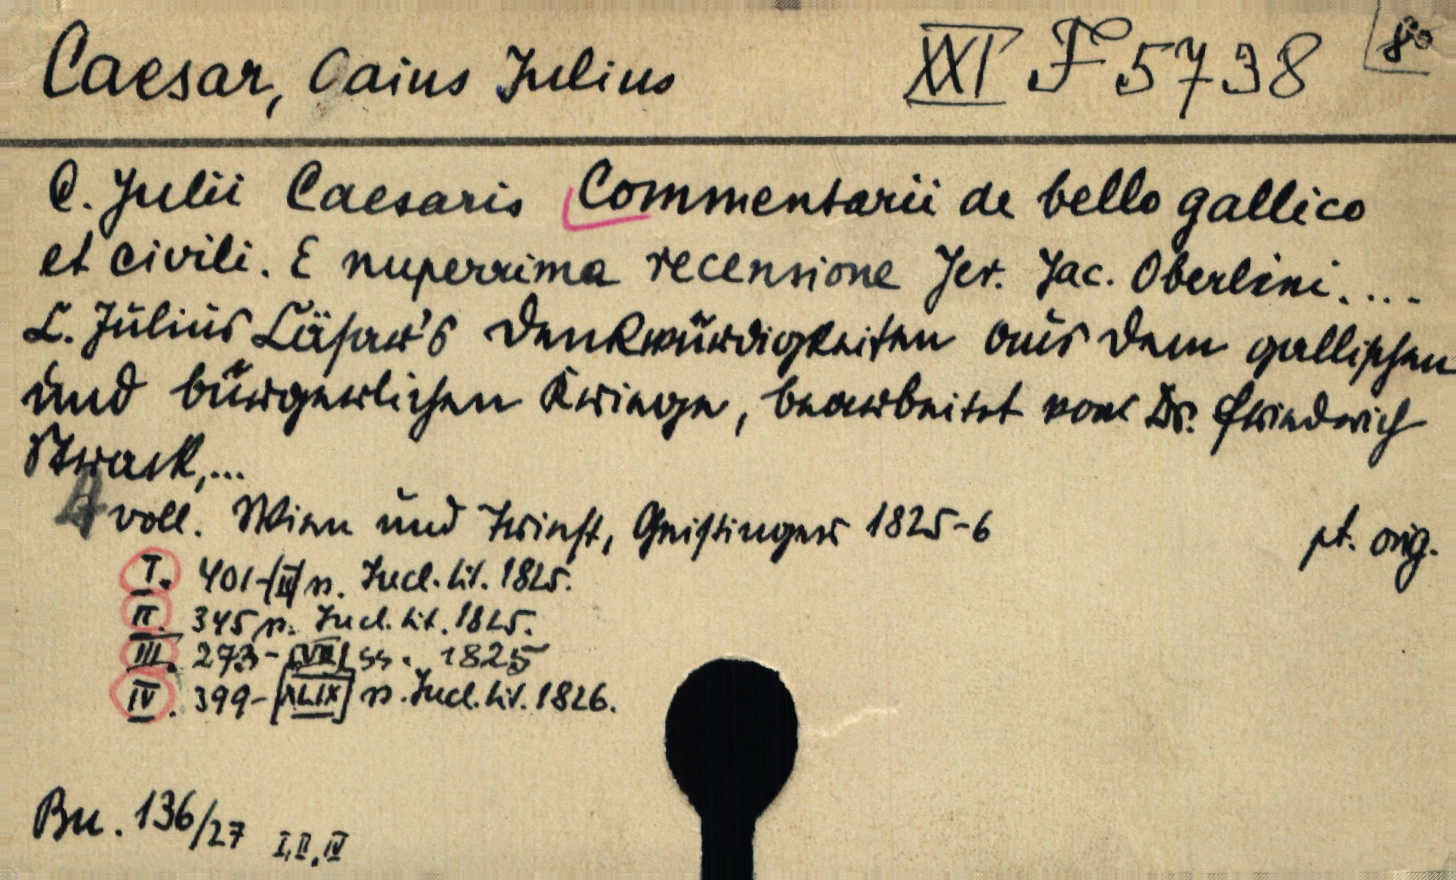 Caesar, Caius Julius XXI F 5738 8°
C. Julii Caesaris Commentarii de bello gallico
et civili. E nuperrima recensione Jer. Jac. Oberlini....
C. Julius Cäsar's Denkwürdigkeiten aus dem gallischen
und bürgerlichen Kriege, bearbeitet von Dr. Friedrich
Strack,...
4 voll. Wien und Triest, Geistinger 1825-6 pt. orig.
I. 401-[II] p. Incl. tit. 1825.
II. 345 p. Incl. tit. 1825.
III. 273-[VII] ss. 1825
IV. 399-[XLIX] p. Incl. tit. 1826.
Bu. 136/27 I, II, IV